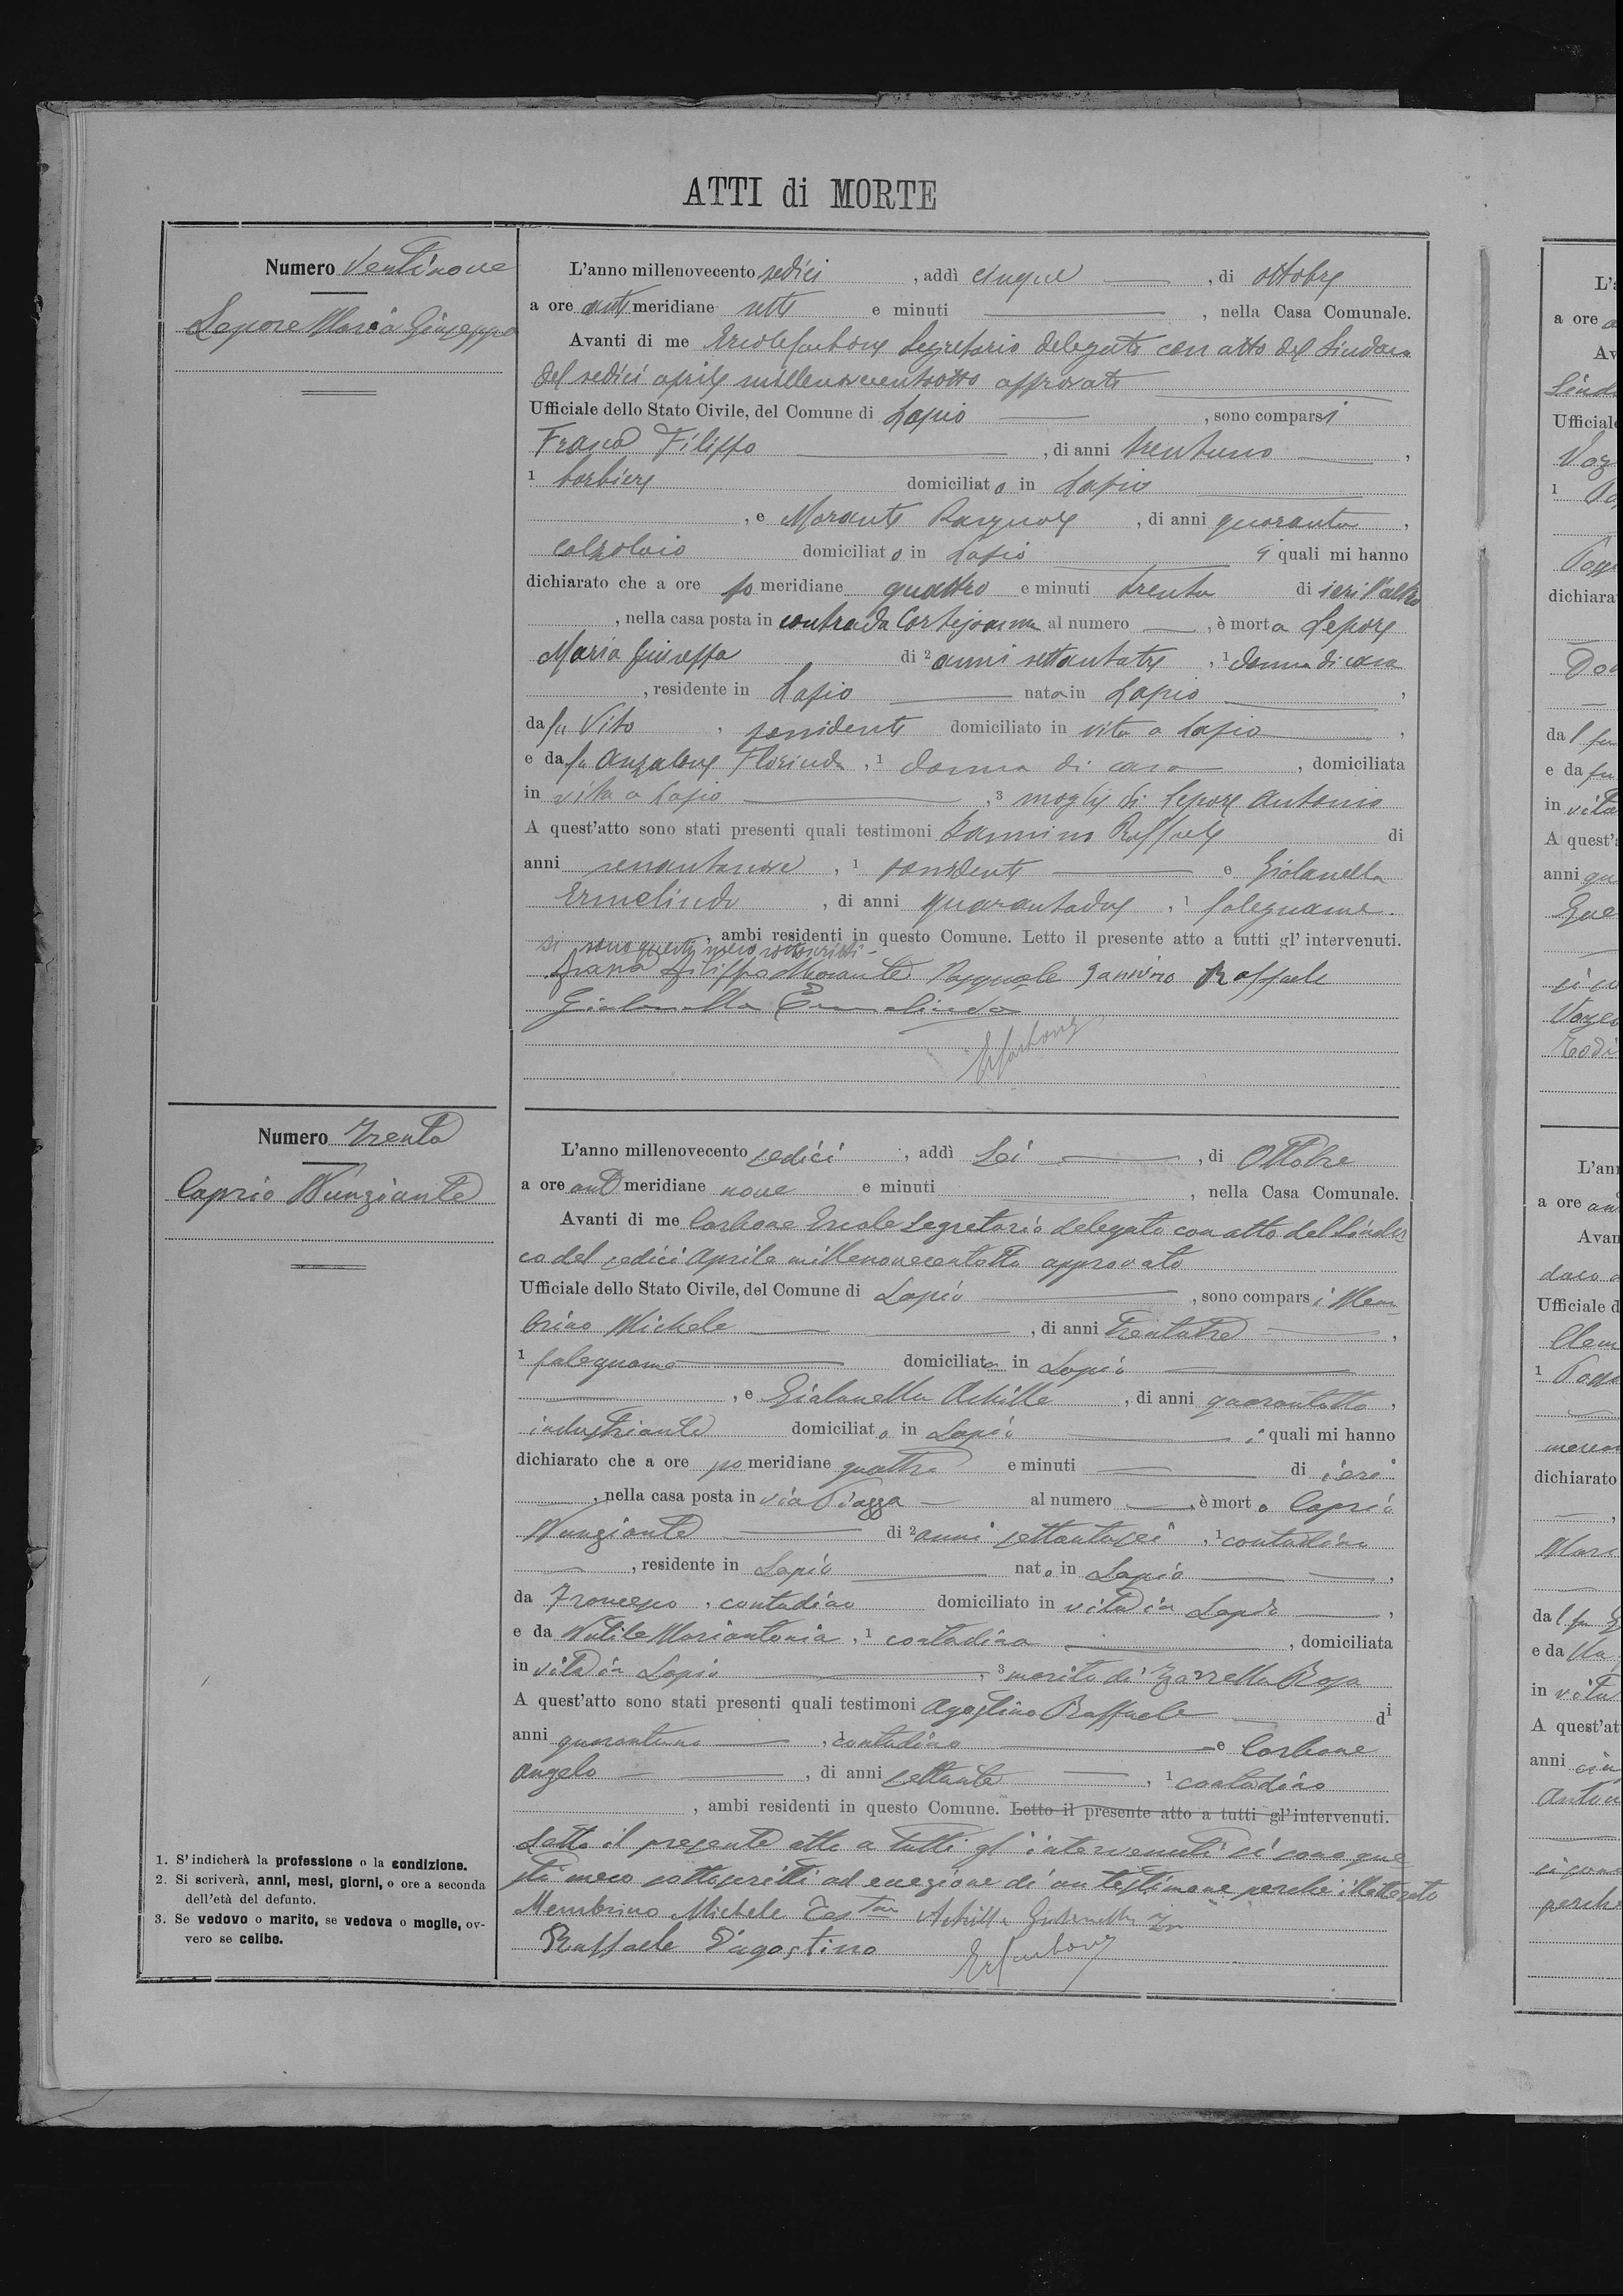 ATTI di MORTE
Numero Ventinove
Lepore Maria Giuseppa
L'anno millenovecento sedici, addì cinque, di ottobre
a ore antimeridiane sette e minuti, nella Casa Comunale.
Avanti di me Ercole Carbone Segretario delegato con atto del Sindaco
del sedici aprile millenovecentootto approvato
Ufficiale dello Stato Civile, del Comune di Lapio, sono comparsi
Filippo, di anni trentuno,
1 barbiere domiciliato in Lapio
, e Morante Pasquale, di anni quaranta,
calzolaio domiciliato in Lapio i quali mi hanno
dichiarato che a ore pomeridiane quattro e minuti trenta di ieri l'altro
, nella casa posta in contrada al numero, è morta Lepore
Maria Giuseppa di 2 anni settantatre, 1 donna di casa
, residente in Lapio nata in Lapio,
da fu Vito, possidente domiciliato in vita a Lapio,
e da fu Anzalone Florinda, 1 donna di casa, domiciliata
in vita a Lapio, 3 moglie di Lepore Antonio
A quest'atto sono stati presenti quali testimoni Raffaele di
anni sessantanove, 1 possidente e Gialanella
Ermelindo, di anni quarantadue, 1 falegname.
, ambi residenti in questo Comune. Letto il presente atto a tutti gl'intervenuti.
si sono questi meco sottoscritti
Filippo Morante Pasquale Raffaele
Gialanella Ermelindo
ErCarbone
Numero Trenta
Caprio Nunziante
L'anno millenovecento sedici, addì Sei, di Ottobre
a ore antimeridiane nove e minuti, nella Casa Comunale.
Avanti di me Carbone Ercole Segretario delegato con atto del Sinda
co del sedici Aprile millenovecentotto approvato
Ufficiale dello Stato Civile, del Comune di Lapio, sono comparsi Mem
brino Michele, di anni Trentatre,
1 falegname domiciliato in Lapio
, e Gialanella Achille, di anni quarantotto,
industriante domiciliato in Lapio i quali mi hanno
dichiarato che a ore pomeridiane quattro e minuti di ieri
, nella casa posta in via Piazza al numero, è morto Caprio
Nunziante di 2 anni settantasei, 1 contadino
, residente in Lapio nato in Lapio,
da Francesco, contadino domiciliato in vita in Lapio,
e da Nutile Mariantonia, 1 contadina, domiciliata
in vita in Lapio, 3 marito di Zarrella Rosa
A quest'atto sono stati presenti quali testimoni Agostino Raffaele di
anni quarantuno, 1 contadino e Carbone
Angelo, di anni settanta, 1 contadino
, ambi residenti in questo Comune. Letto il presente atto a tutti gl'intervenuti.
Letto il presente atto a tutti gl'intervenuti si sono que
sti meco sottoscritti ad eccezione di un testimone perché illetterato
Membrino Michele Achille Gialanella
Raffaele D'agostino ErCarbone
1. S'indicherà la professione o la condizione.
2. Si scriverà, anni, mesi, giorni, o ore a seconda
dell'età del defunto.
3. Se vedovo o marito, se vedova o moglie, ov-
vero se celibe.